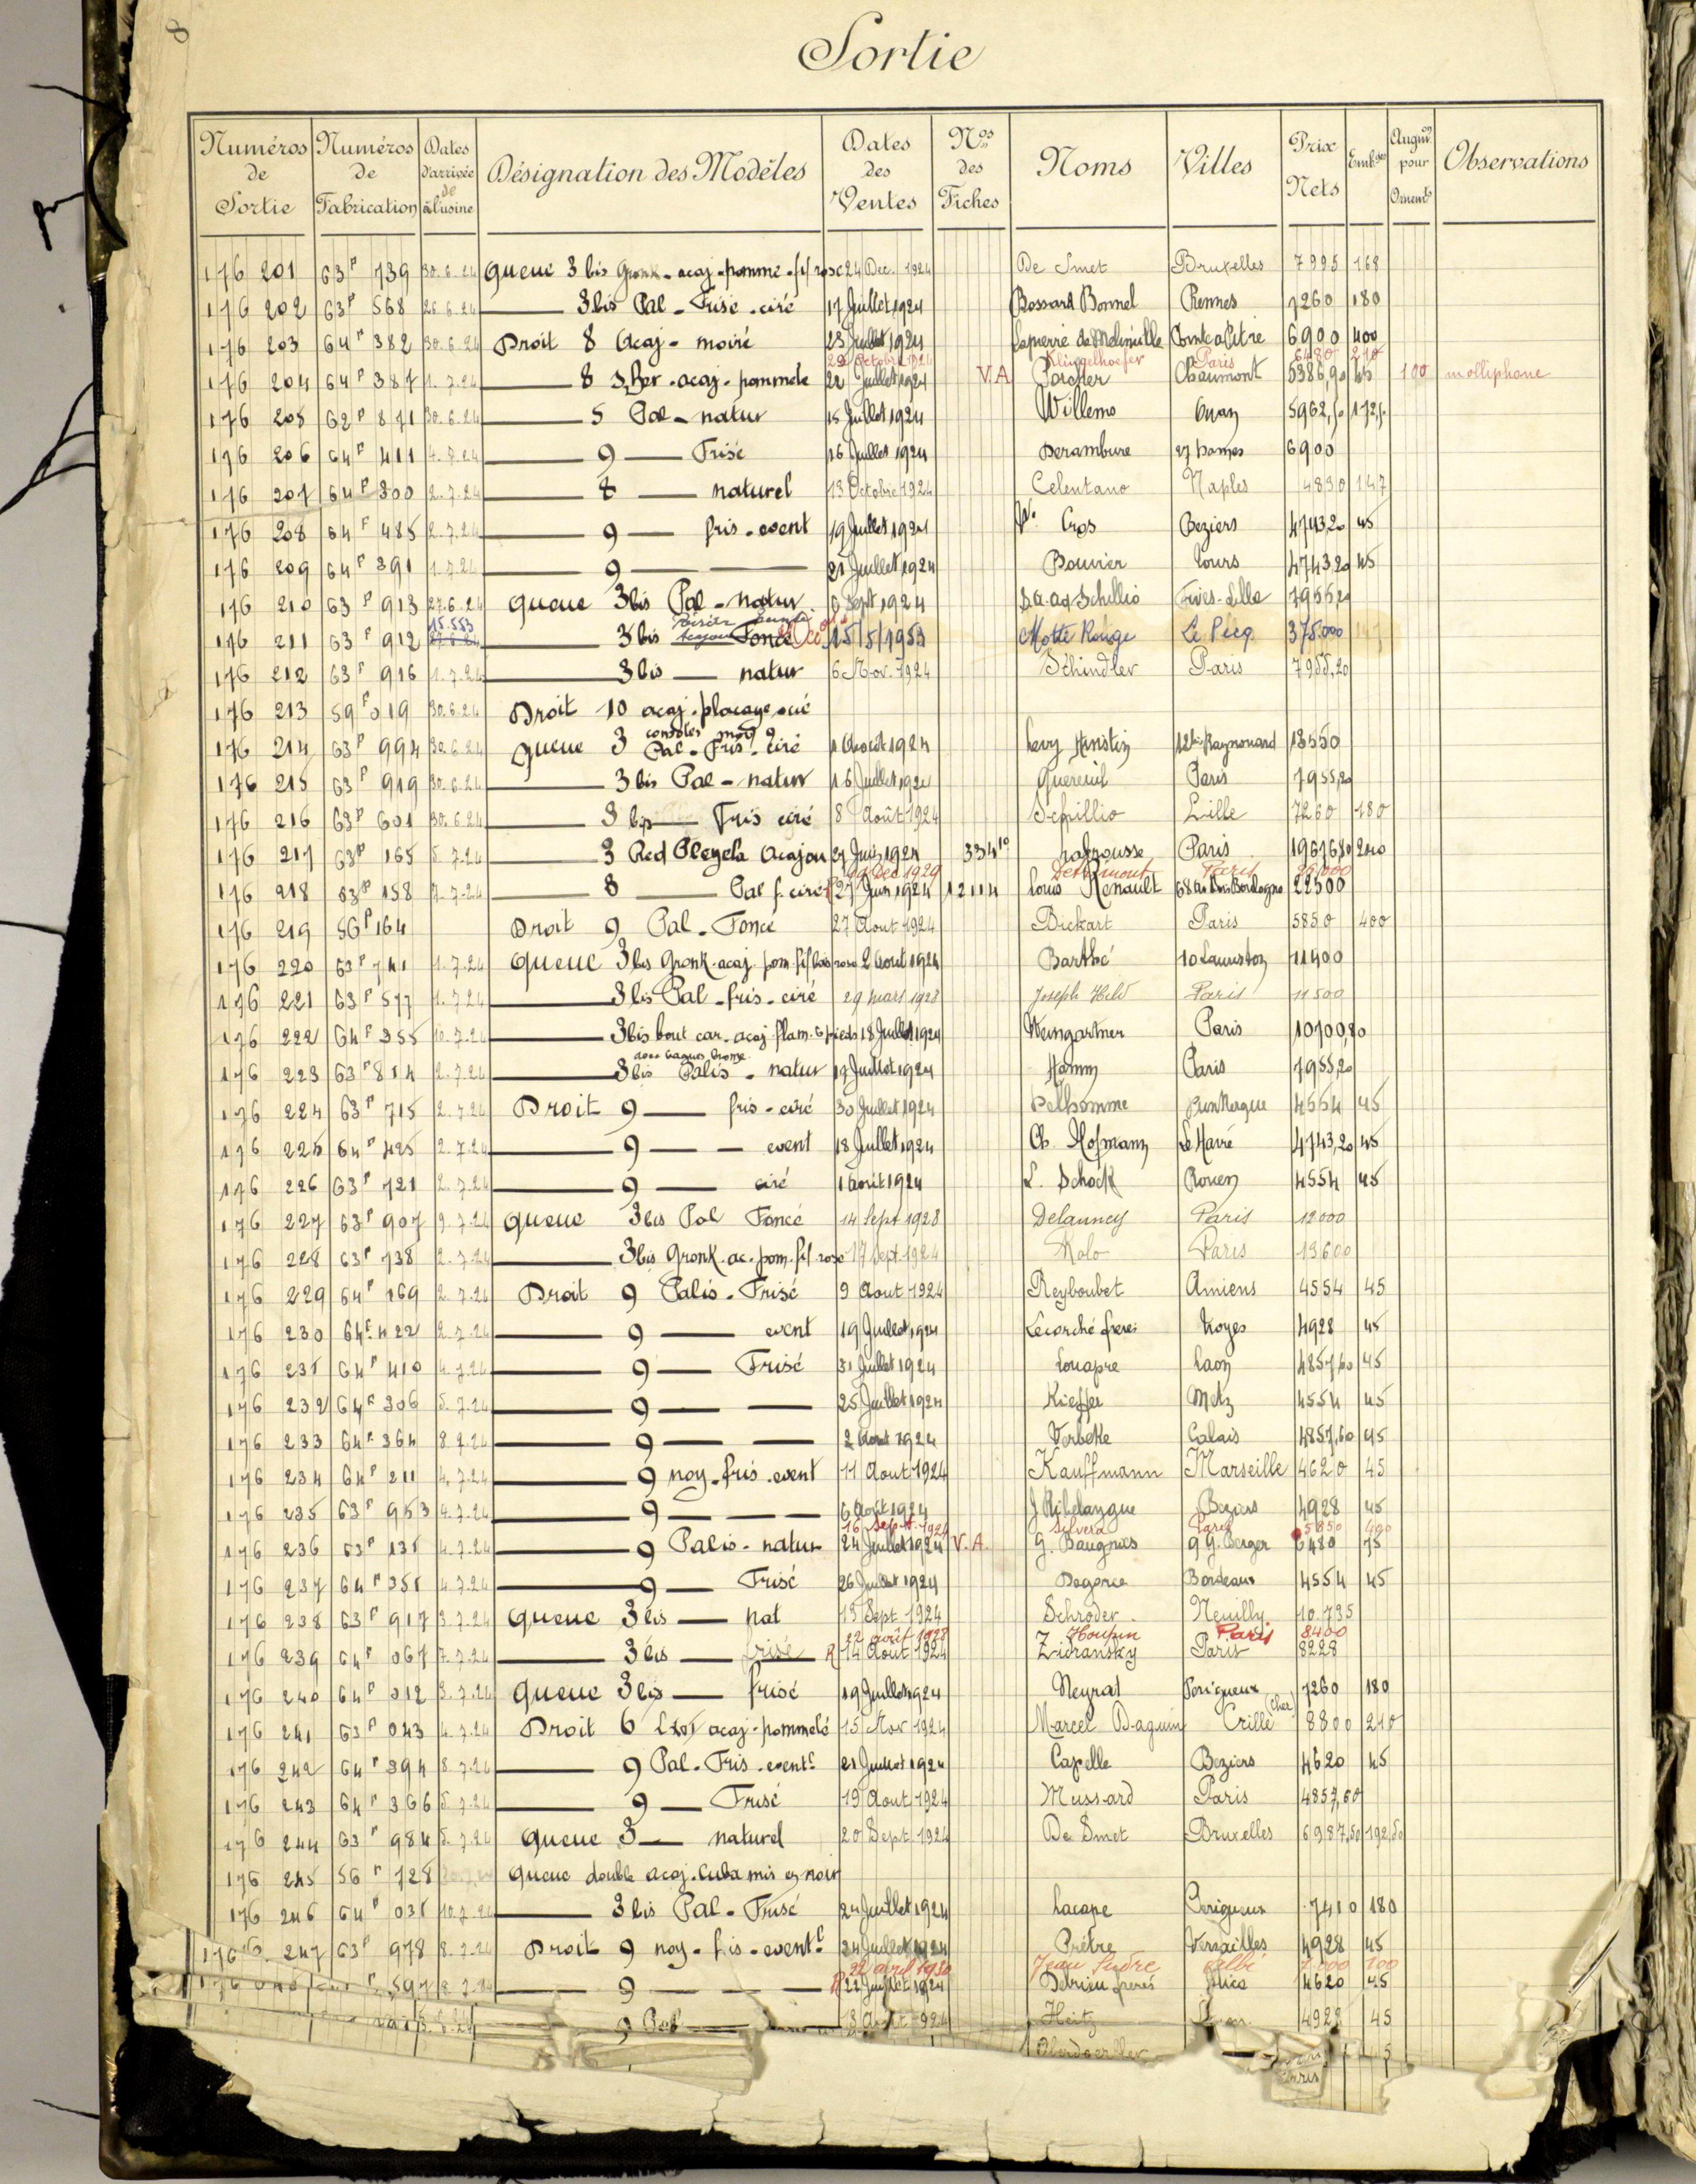 8
Sortie
Numéros de Sortie Numéros de Fabrication Dates d'arrivée de l'usine Désignation des Modèles Dates des Ventes Nos des Fiches Noms Villes Prix Nets Emb. Augm. pour Ornem. Observations
176 201 63P 739 30.6.24 Queue 3 bis Gronk - acaj - pomme - fil rose 24 Dec. 1924 De Smet Bruxelles 7995 168
176 202 63P 568 26.6.24 3 bis Pal - Frisé - ciré 17 Juillet 1924 Bossard Bonnel Rennes 7260 180
176 203 64P 382 30.6.24 Droit 8 Acaj - moiré 23 Juillet 1924 Pointe a Pitre 6900 400
29 Octobre 1924 Klingelhoefer Paris 6480 210
176 204 64P 387 1.7.24 8 acaj - pommelé 22 Juillet 1924 V.A Chaumont 5386,90 45 100 molliphone
176 205 62P 871 30.6.24 5 Pal - natur 15 Juillet 1924 Willems 5962,50 172,50
176 206 64P 411 4.7.24 9 Frisé 16 Juillet 1924 Derambure 6900
176 207 64P 300 2.7.24 8 naturel 13 Octobre 1924 Celentano Naples 4830 147
176 208 64P 485 2.7.24 9 fris - event 19 Juillet 1924 Cros Beziers 4743,20 45
176 209 64P 391 1.7.24 9 21 Juillet 1924 Bouvier Tours 4743,20 45
176 210 63P 913 27.6.24 Queue 3 bis Pal - natur 6 Sept 1924 Fives-Lille 7955,20
15.5.53
176 211 63P 912 27.6.24 3 bis Foncé 15/5/1953 Motte Rouge Le Pecq 375.000
176 212 63P 916 1.7.24 3 bis natur 6 Nov. 1924 Schindler Paris 7955,20
176 213 59P 019 30.6.24 Droit 10 acaj - placage ciré
consoles
176 214 63P 994 30.6.24 Queue 3 Pal - Fris - ciré 1 Août 1924 Levy Hinstin 12 bis Raynouard 13550
176 215 63P 919 30.6.24 3 bis Pal - natur 16 Juillet 1924 Quereuil Paris 7955,20
176 216 63P 601 30.6.24 3 bis Fris ciré 8 Août 1924 Schillio Lille 7260 180
176 217 63P 165 5.7.24 3 Red Pleyela Acajou 27 Juin 1924 334 Larousse Paris 240
Paris
176 218 63P 158 7.7.24 8 Pal f. ciré 27 Juin 1924 12114 Louis Renault 22500
176 219 56P 164 Droit 9 Pal - Foncé 27 Aout 1924 Bickart Paris 5850 400
176 220 63P 741 1.7.24 Queue 3 bis Gronk - acaj pom. fil bois rose 2 Aout 1924 Barthé 10 Lauriston 11900
176 221 63P 577 1.7.24 3 bis Pal - fris - ciré 29 mars 1928 Joseph Held Paris 11500
176 222 64P 355 10.7.24 3 bis bout car. acaj. flam. 6 pieds 18 Juillet 1924 Weingartner Paris 10700,80
avec bagues brome
176 223 63P 814 2.7.24 3 bis Palis - natur 17 Juillet 1924 Hamm Paris 7955,20
176 224 63P 715 2.7.24 Droit 9 fris - ciré 30 Juillet 1924 Delhomme Dunkerque 4554 45
176 225 64P 425 2.7.24 9 event 18 Juillet 1924 Ch. Hofmann Le Havre 4743,20 45
176 226 63P 721 2.7.24 9 ciré 1 Août 1924 L. Schock Rouen 4554 45
176 227 63P 907 9.7.24 Queue 3 bis Pal Foncé 14 Sept 1928 Delauney Paris 12000
176 228 63P 738 2.7.24 3 bis Gronk. ac. pom. fil rose 17 Sept. 1924 Kolo Paris 13600
176 229 64P 169 2.7.24 Droit 9 Palis - Frisé 9 Aout 1924 Reyboubet Amiens 4554 45
176 230 64P 422 2.7.24 9 event 19 Juillet 1924 Lecorché freres Troyes 4928 45
176 231 64P 410 4.7.24 9 Frisé 31 Juillet 1924 Louapre Laon 4857,60 45
176 232 64P 306 5.7.24 9 25 Juillet 1924 Kieffer Metz 4554 45
176 233 64P 364 8.7.24 9 2 Aout 1924 Verbeke Calais 4857,60 45
176 234 64P 211 4.7.24 9 noy - fris - event 11 Aout 1924 Kauffmann Marseille 4620 45
176 235 63P 953 4.7.24 9 6 Août 1924 J Ribelaygue Beziers 4928 45
16 Sept. 1924 Silvera Paris 5850 400
176 236 63P 131 4.7.24 9 Palis - natur 24 Juillet 1924 V.A. G. Baugnies 9 G. Berger 6480 75
176 237 64P 351 4.7.24 9 Frisé 26 Juillet 1924 Degorce Bordeaux 4554 45
176 238 63P 917 3.7.24 Queue 3 bis nat 13 Sept 1924 Schroder Neuilly 10.735
22 août 1928 Houpin Paris 8400
176 239 64P 067 7.7.24 3 bis frisé R 14 Aout 1924 Zioransky Paris 8228
176 240 64P 012 3.7.24 Queue 3 bis frisé 19 Juillet 1924 Neyrat Perigueux 7260 180
176 241 63P 043 4.7.24 Droit 6 acaj - pommelé 15 Nov 1924 Marcel Daguin Crille Cher 8800 210
176 242 64P 394 8.7.24 9 Pal - Fris - event 21 Juillet 1924 Capelle Beziers 4620 45
176 243 64P 366 5.7.24 9 Frisé 19 Aout 1924 Mussard Paris 4857,60
176 244 63P 984 5.7.24 Queue 3 naturel 20 Sept. 1924 De Smet Bruxelles 6987,50 192,50
176 245 56P 728 Queue double acaj. Cuba mis en noir
176 246 64P 031 10.7.24 3 bis Pal - Frisé 24 Juillet 1924 Lacape Perigueux 7410 180
176 247 63P 978 8.7.24 Droit 9 noy - fris - event 24 Juillet 1924 Prêtre Versailles 4928 45
22 avril 1930 Jean Sudre 7000 100
597 9 R 22 Juillet 1924 Delrieu freres Nice 4620 45
9 Pal 1924 Heitz 4928 45
Oberdoerffer 45
Paris